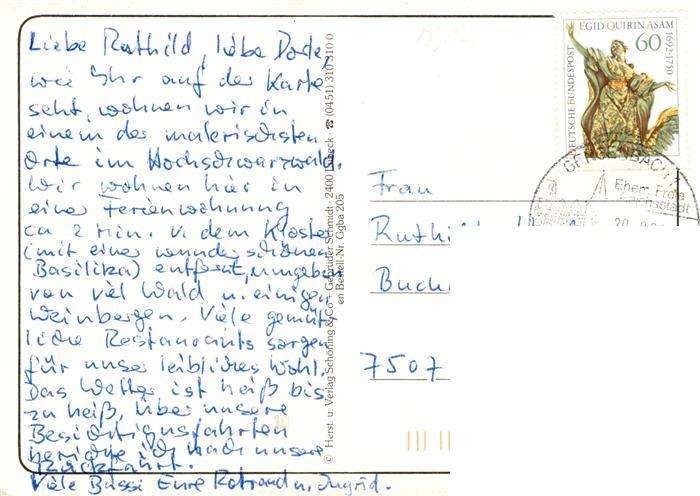 Liebe Rothild, liebe Dode,
wie Ihr auf der Karte
seht, wohnen wir in
einem der malerischsten
Orte im Hochschwarzwald.
Wir wohnen hier in
einer Ferienwohnung
ca 2 Min. v. dem Kloster
(mit einer wunderschönen
Basilika) entfernt, umgeben
von viel Wald u. einigen
Weinbergen. Viele gemüt-
liche Restaurants sorgen
für unser leibliches Wohl.
Das Wetter ist heiß bis
zu heiß, über unsere
Besichtigungsfahrten
berichte ich nach unserer
Rückfahrt.
Viele Bussi Eure Rotraud u. Ingrid.
© Herst. u. Verlag Schöning & Co + Gebrüder Schmidt · 2400 Lübeck · ☎ (0451) 310 310 0
en Bestell-Nr. Ggba 205
EGID QUIRIN ASAM
1692-1750
60
DEUTSCHE BUNDESPOST
GENGENBACH
Ehem. Freie
Reichsstadt
Frau
Ruthi
Buch
7507